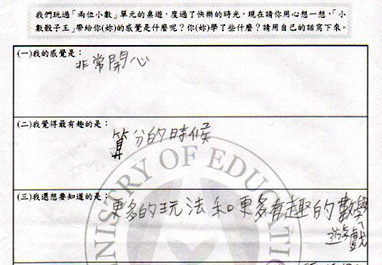 我們玩過「兩位小數」單元的桌遊，度過了快樂的時光，現在請你用心想一想，「小
數骰子王」帶給你(妳)的感覺是什麼呢？你(妳)學了些什麼？請用自己的話寫下來。
(一)我的感覺是：
非常開心
(二)我覺得最有趣的是：
算分的時候
(三)我還想要知道的是：
更多的玩法和更多有趣的數學
遊戲
MINISTRY OF EDUCATION